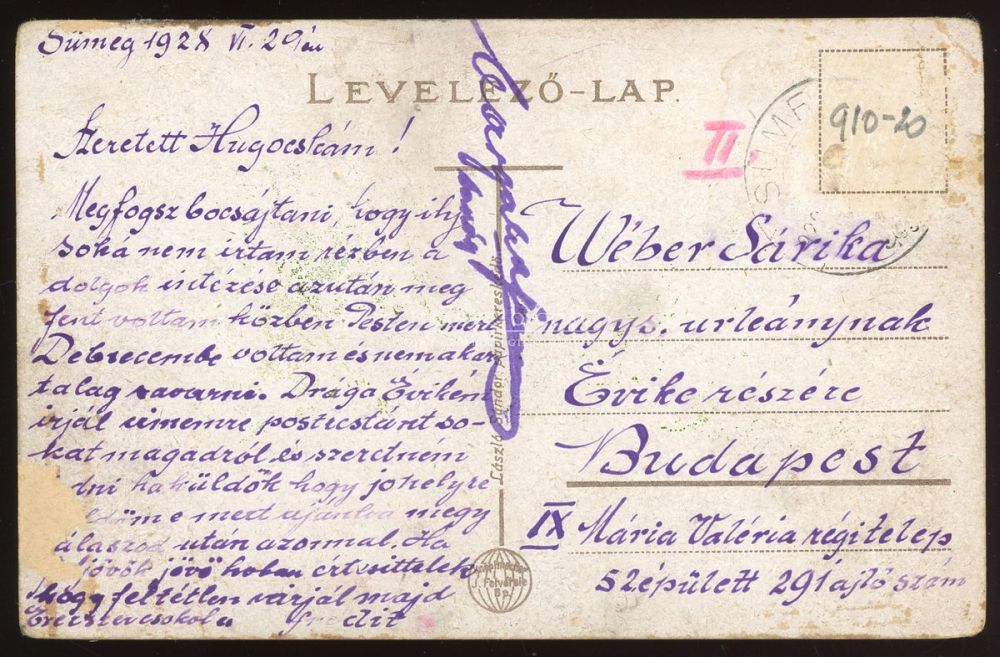 Sümeg 1928 VI. 29én
LEVELEZŐ-LAP.
Szeretett Hugocskám!
Megfogsz bocsájtani, hogy ily
soká nem irtam részben a
dolgok intézése azután meg
fent voltam közben Pesten mert
Debrecembe voltam és nem akar
talag zavarni. Drága Évikém
irjál cimemre postcstánt so-
kat magadról és szeretném
dni ha küldök hogy jo helyre
e mert ajánlva megy
álaszod után azonnal. Ha
jövök jövö hoban értesittelek
hogy feltétlen várjál majd
fredit
II.
910-20
SÜME
Wéber Sárika
nagys. urleánynak
Évike részére
Budapest
IX Mária Valéria régitelep
52épülett 291ajtó szám
László Sándor papirkereskedő
Felvétele
Bp.